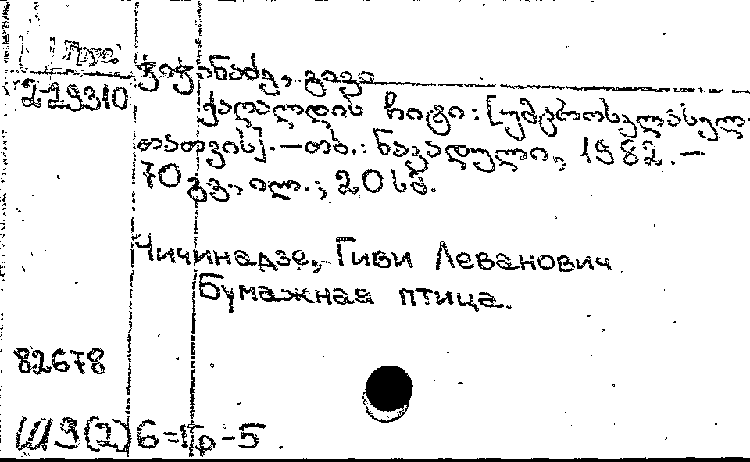 Груз.
ჭიჭინაძე, გივი
2-29310
ქაღალდის ჩიტი: [უმცროსკლასელ-
თათვის]. — თბ.: ნაკადული, 1982. —
70 გვ., ილ.; 20 სმ.
Чичинадзе, Гиви Леванович
Бумажная птица.
82678
Ш9(2)6=Гр-5